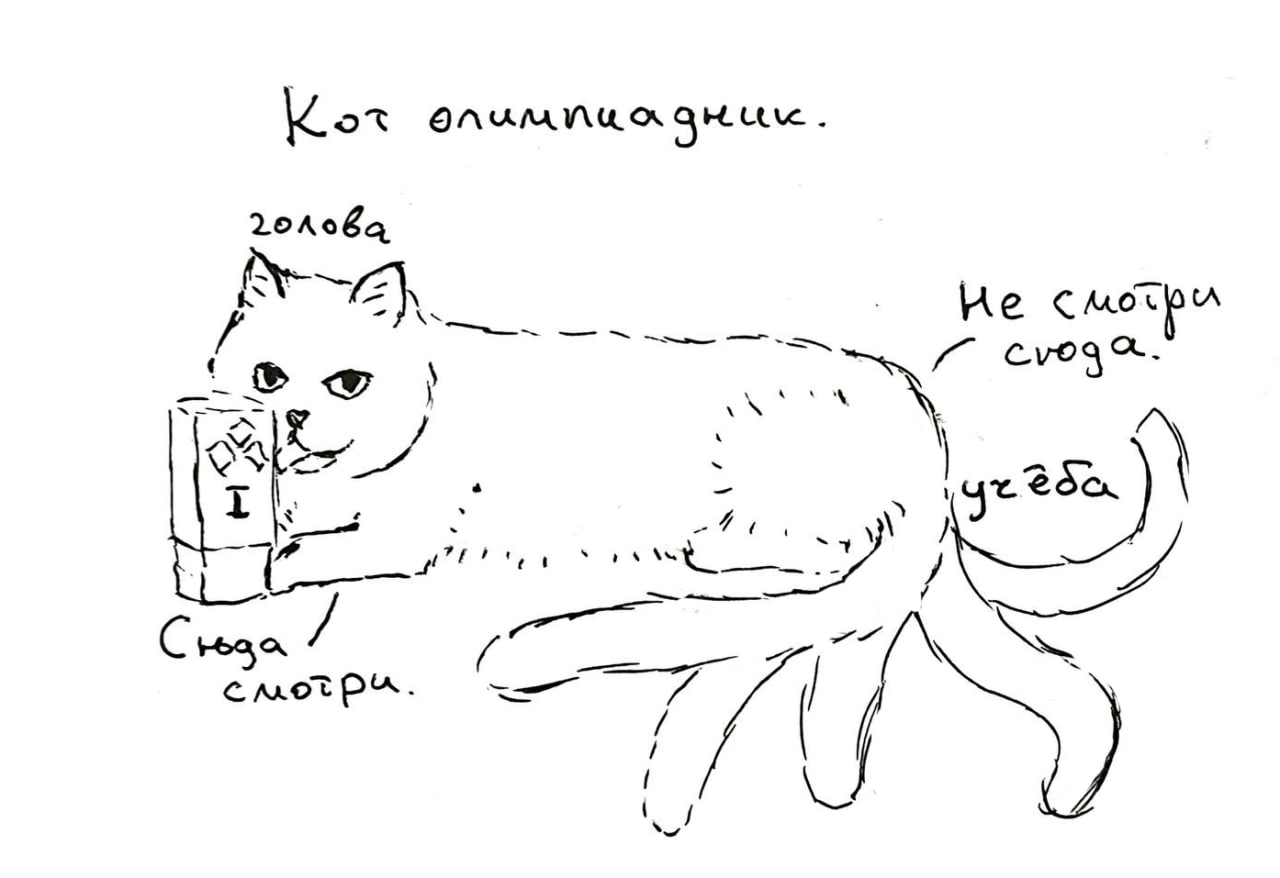 Кот олимпиадник.
голова
Не смотри
сюда.
учёба
I
Сюда
смотри.